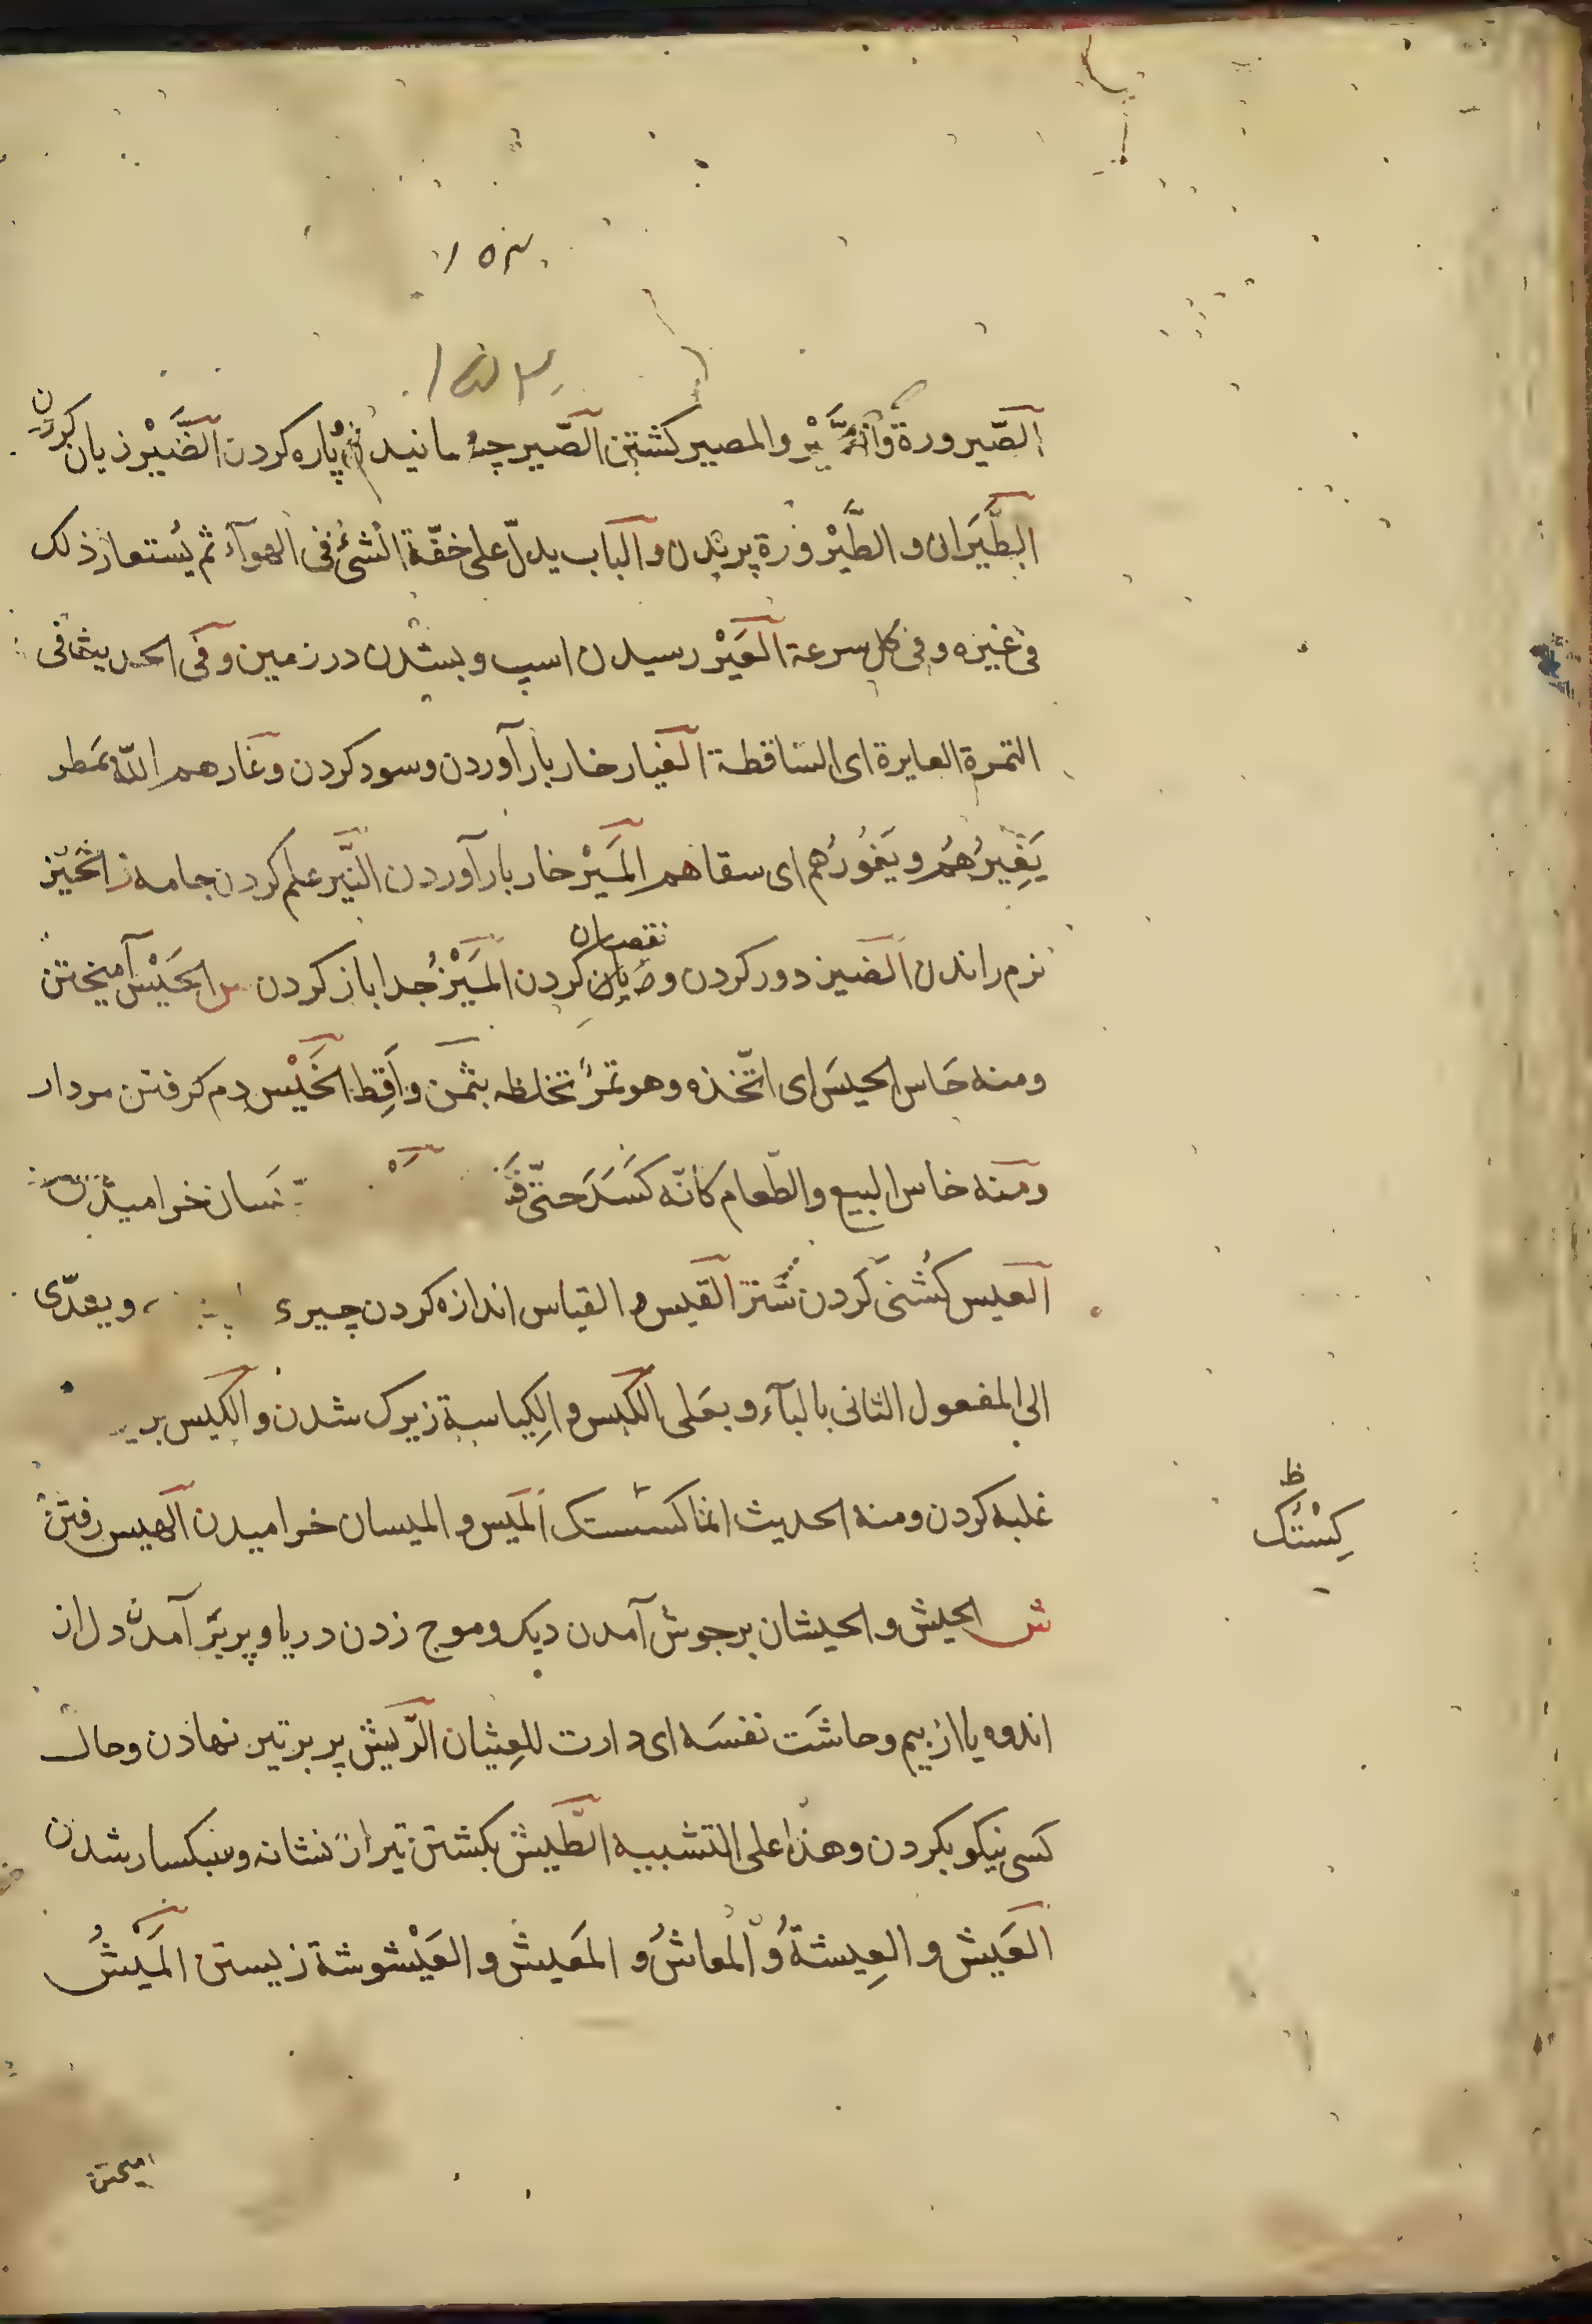 الصّیرورة والصَّیْر والمصیر کشتن الصّیر چه مانیدن پاره کردن الضَّیْر زیان کردن
الطَّیَران و الطَّیْرورة پریدن والباب یدلّ علی خفّة الشئ فی الهوآء ثم یُستعار ذلک
فی غیره و فی کل سرعة العَیْر رسیدن اسپ و بشدن در زمین وفی الحدیث فی
التمرة العایرة ای الساقطة الغیار خار بار آوردن و سود کردن وغارهم اللّه بمطر
یَغِیرُهُم و یَغُورُهم ای سقاهم المَیْر خار بار آوردن النَّیر علم کردن جامه ز الحَیْز
نرم راندن الضیز دور کردن و نقصان کردن المَیْز جُدا باز کردن س الحَیْس آمیختن
ومنه حَاس الحیسَ ای اتّخذه وهو تمرٌ تخلطه بثمن واَقِط الخَیْس دم کرفتن مردار
ومنه خاس البیع والطّعام کأنّه کَسَدَ حتّی سان خرامیدن
العیس کُشنی کردن شتر القیس و القیاس اندازه کردن چیزی ویعدّی
الی المفعول الثانی بالبآء و بعلی الکیس و الکِیاسة زیرک شدن و الکیس
غلبه کردن ومنه الحدیث انما کستک المَیس و المیسان خرامیدن الهیس رفتن
کِسْتُک
ش الجیش و الجیشان بر جوش آمدن دیک و موج زدن دریا و بربَر آمدن دل از
اندوه یا از بیم و جاشَت نفسَه ای دارت للغِثیان الرّیش پر بر تیر نهادن و حال
کسی نیکو بکردن وهذا علی التشبیه الطّیش بکشتن تیر از نشانه وسبکسار شدن
العَیش و العِیشةُ و المعاشُ و المَعیش و العَیْشوشة زیستن المَیْشُ
امیختن